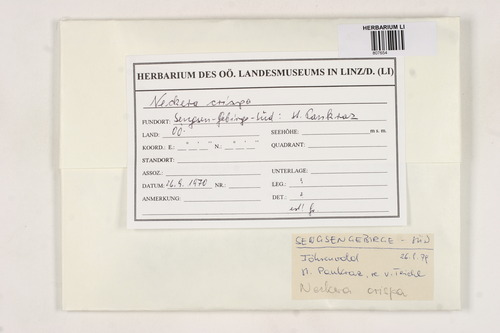 HERBARIUM LI
807654
HERBARIUM DES OÖ. LANDESMUSEUMS IN LINZ/D. (LI)
Neckera crispa
FUNDORT: Sengsen-Gebirge-Süd: St. Pankraz
LAND: OÖ.
SEEHÖHE: m s. m.
KOORD.: E.: ° ' " N.: ° ' "
QUADRANT:
STANDORT:
ASSOZ.:
UNTERLAGE:
DATUM: 16.9.1970 NR.:
LEG.: ?
ANMERKUNG:
DET.:
SENGSENGEBIRGE - SÜD
Föhrenwald
n. Pankraz, v. Teichl
Neckera crispa